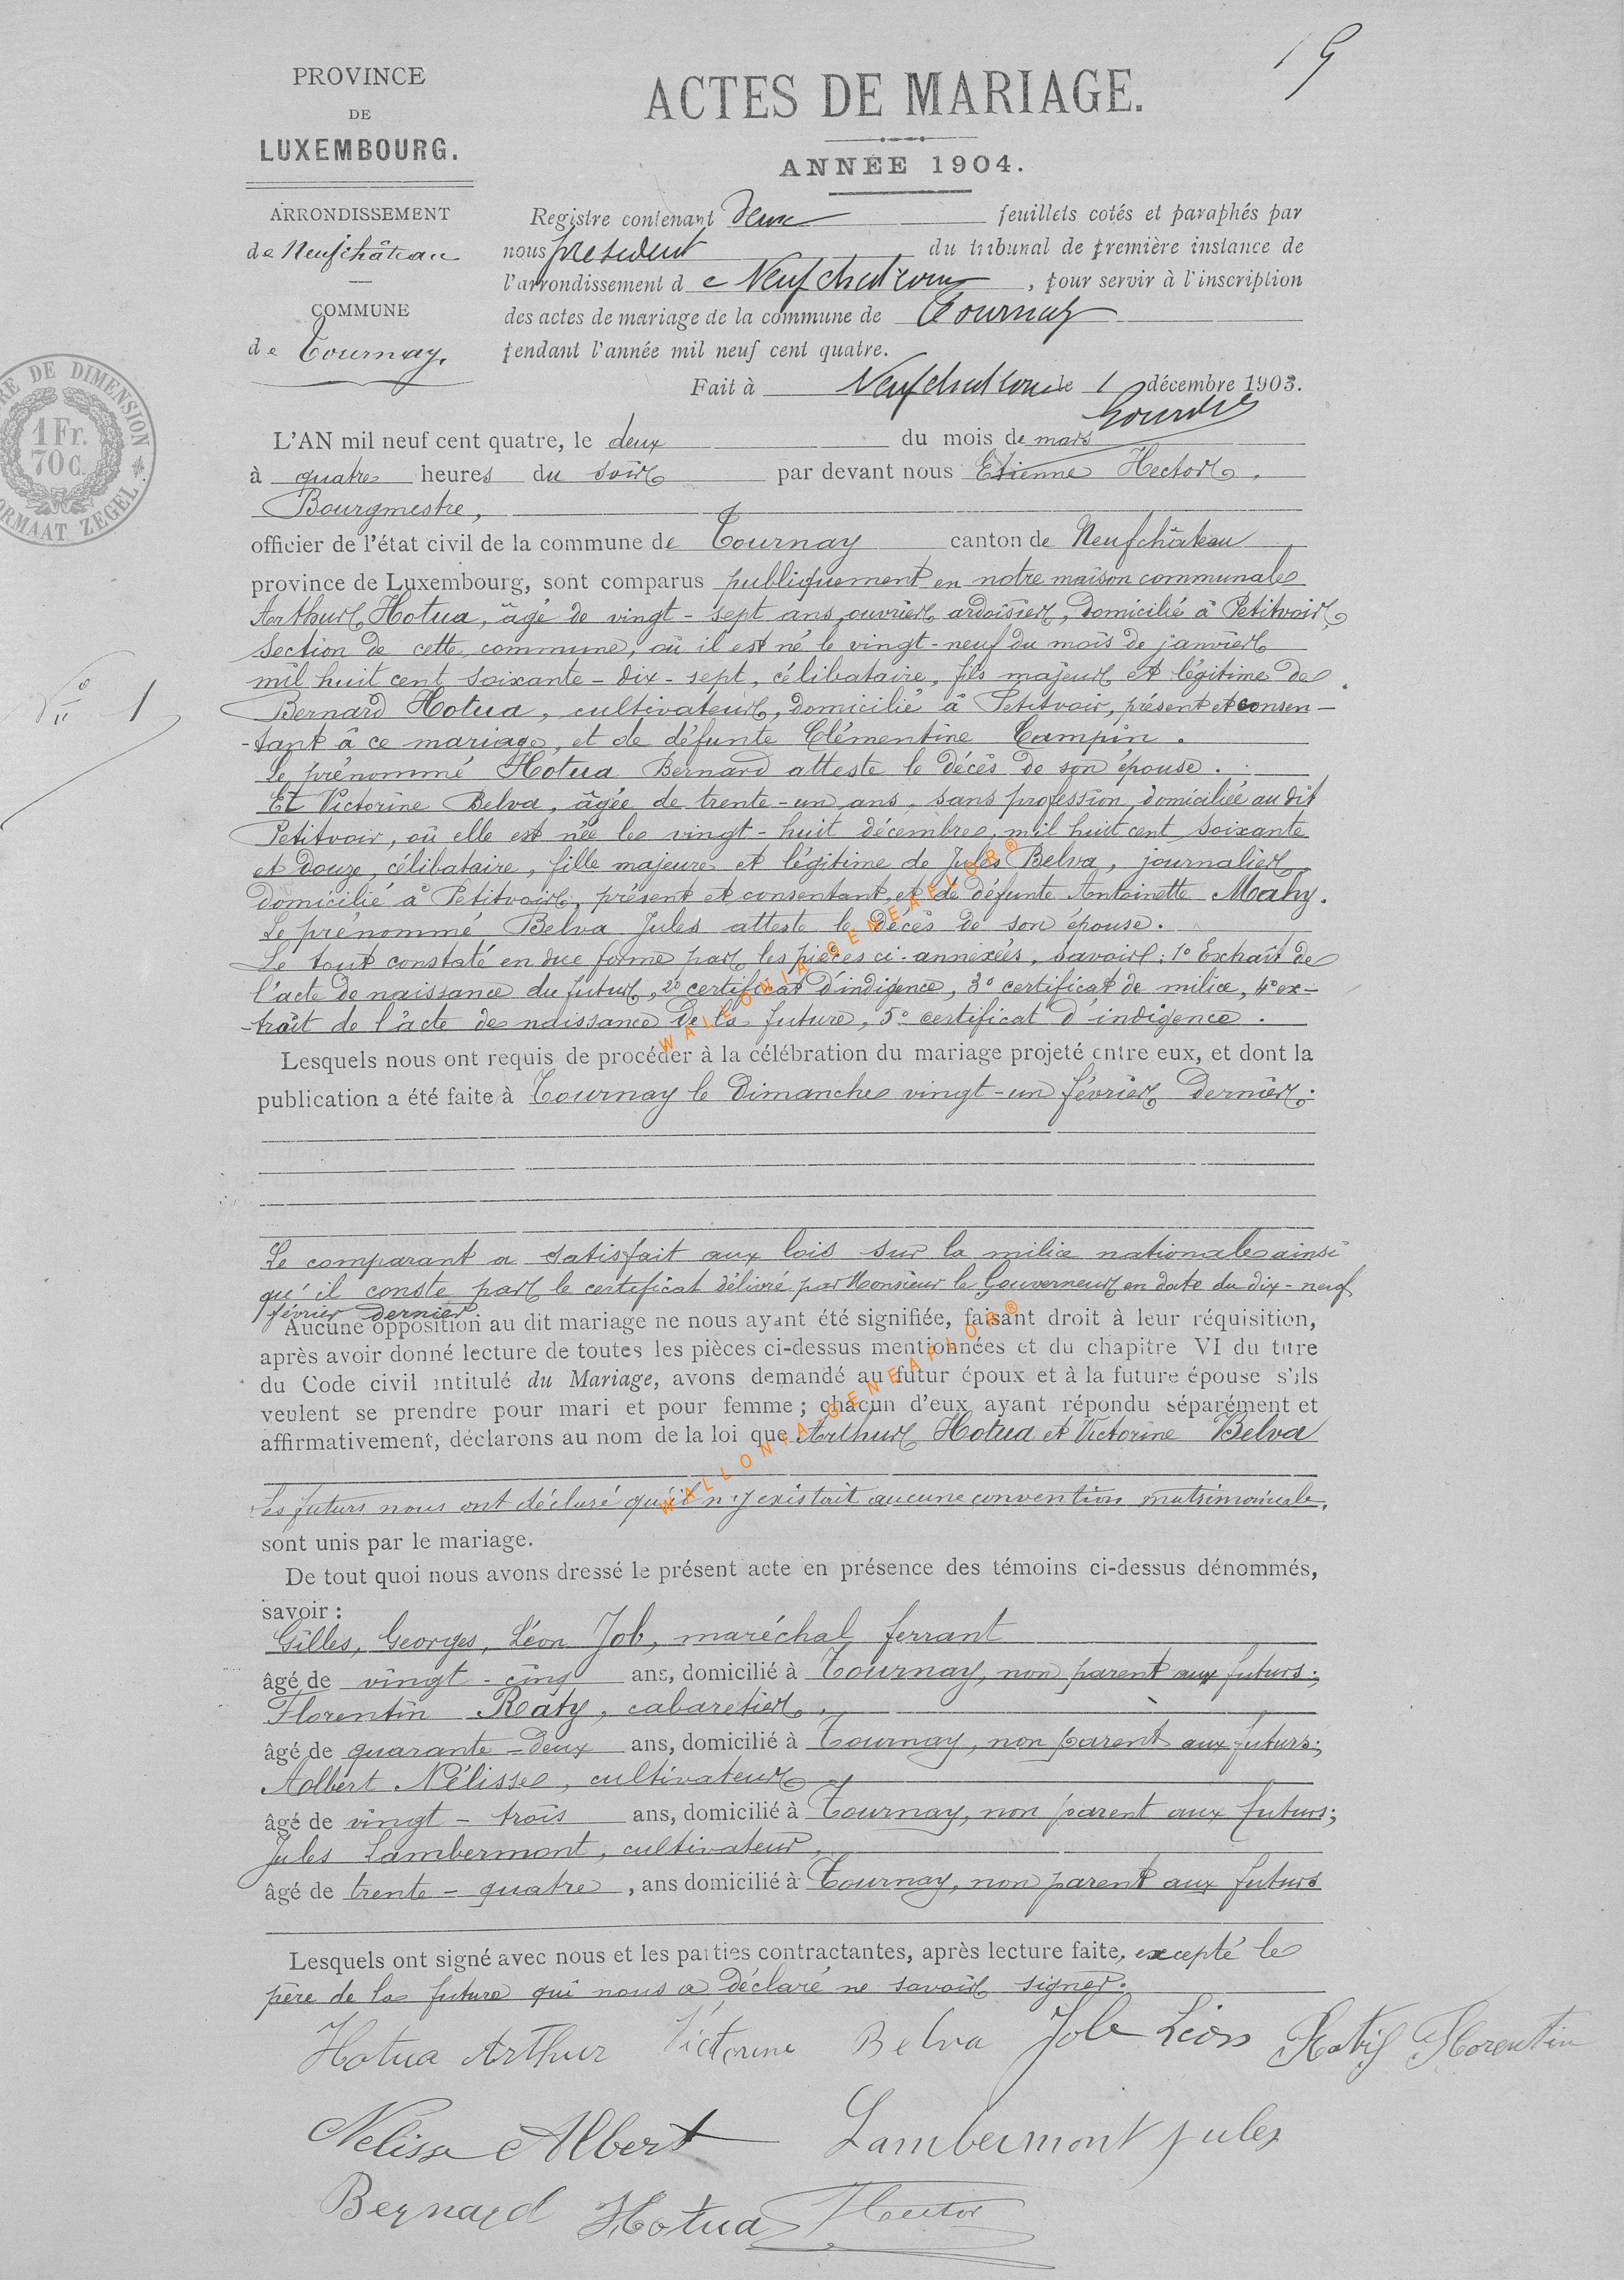 19
PROVINCE
DE
LUXEMBOURG.
ACTES DE MARIAGE.
ANNÉE 1904.
ARRONDISSEMENT
de Neufchâteau
COMMUNE
de Tournay.
Registre contenant deux feuillets cotés et paraphés par
nous président du tribunal de première instance de
l'arrondissement de Neufchateau, pour servir à l'inscription
des actes de mariage de la commune de Tournay
pendant l'année mil neuf cent quatre.
Fait à Neufchateau le 1 décembre 1903.
RE DE DIMENSION
1 Fr.
70 C.
ORMAAT ZEGEL
L'AN mil neuf cent quatre, le deux du mois de mars
à quatre heures du soir par devant nous Etienne Hector,
Bourgmestre,
officier de l'état civil de la commune de Tournay canton de Neufchâteau
province de Luxembourg, sont comparus publiquement en notre maison communale
Arthur Hotua, âgé de vingt-sept ans, ouvrier ardoisier, domicilié à Petitvoir,
section de cette commune, où il est né le vingt-neuf du mois de janvier
mil huit cent soixante-dix-sept, célibataire, fils majeur et légitime de
N° 1
Bernard Hotua, cultivateur, domicilié à Petitvoir, présent et consen-
-tant à ce mariage, et de défunte Clémentine Campin.
Le prénommé Hotua Bernard atteste le décès de son épouse.
Et Victorine Belva, âgée de trente-un ans, sans profession, domiciliée au dit
Petitvoir, où elle est née le vingt-huit décembre, mil huit cent soixante
et douze, célibataire, fille majeure et légitime de Jules Belva, journalier
domicilié à Petitvoir, présent et consentant, et de défunte Antoinette Mahy.
Le prénommé Belva Jules atteste le décès de son épouse.
Le tout constaté en due forme par les pièces ci-annexées, savoir: 1° Extrait de
l'acte de naissance du futur, 2° certificat d'indigence, 3° certificat de milice, 4° ex-
-trait de l'acte de naissance de la future, 5° certificat d'indigence.
WALLONIA-GENEAFLOR®
Lesquels nous ont requis de procéder à la célébration du mariage projeté entre eux, et dont la
publication a été faite à Tournay le Dimanche vingt-un février dernier.
Le comparant a satisfait aux lois sur la milice nationale ainsi
qu'il conste par le certificat délivré par Monsieur le Gouverneur en date du dix-neuf
février dernier.
Aucune opposition au dit mariage ne nous ayant été signifiée, faisant droit à leur réquisition,
après avoir donné lecture de toutes les pièces ci-dessus mentionnées et du chapitre VI du titre
du Code civil intitulé du Mariage, avons demandé au futur époux et à la future épouse s'ils
veulent se prendre pour mari et pour femme ; chacun d'eux ayant répondu séparément et
affirmativement, déclarons au nom de la loi que Arthur Hotua et Victorine Belva
WALLONIA-GENEAFLOR®
Les futurs nous ont déclaré qu'il n'y existait aucune convention matrimoniale.
sont unis par le mariage.
De tout quoi nous avons dressé le présent acte en présence des témoins ci-dessus dénommés,
savoir :
Gilles, Georges, Léon Job, maréchal ferrant
âgé de vingt-cinq ans, domicilié à Tournay, non parent aux futurs;
Florentin Raty, cabaretier,
âgé de quarante-deux ans, domicilié à Tournay, non parent aux futurs;
Albert Nélisse, cultivateur
âgé de vingt-trois ans, domicilié à Tournay, non parent aux futurs;
Jules Lambermont, cultivateur,
âgé de trente-quatre, ans domicilié à Tournay, non parent aux futurs
Lesquels ont signé avec nous et les parties contractantes, après lecture faite, excepté le
père de la future qui nous a déclaré ne savoir signer.
Hotua Arthur Victorine Belva Job Léon Raty Florentin
Nelisse Albert Lambermont Jules
Bernard Hotua Hector